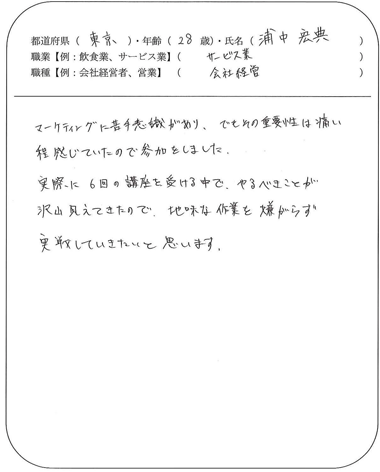 都道府県（ 東京 ）・年齢（ 28 歳）・氏名（ 浦中 宏典 ）
職業【例：飲食業、サービス業】（ サービス業 ）
職種【例：会社経営者、営業】（ 会社経営 ）
マーケティングに苦手意識があり、でもその重要性は痛い
程感じていたので参加をしました.
実際に6回の講座を受ける中で、やるべきことが
沢山見えてきたので、地味な作業を嫌がらず
実践していきたいと思います.